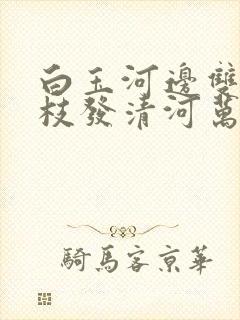 白玉河邊雙
枝發清河萬
騎馬客京華